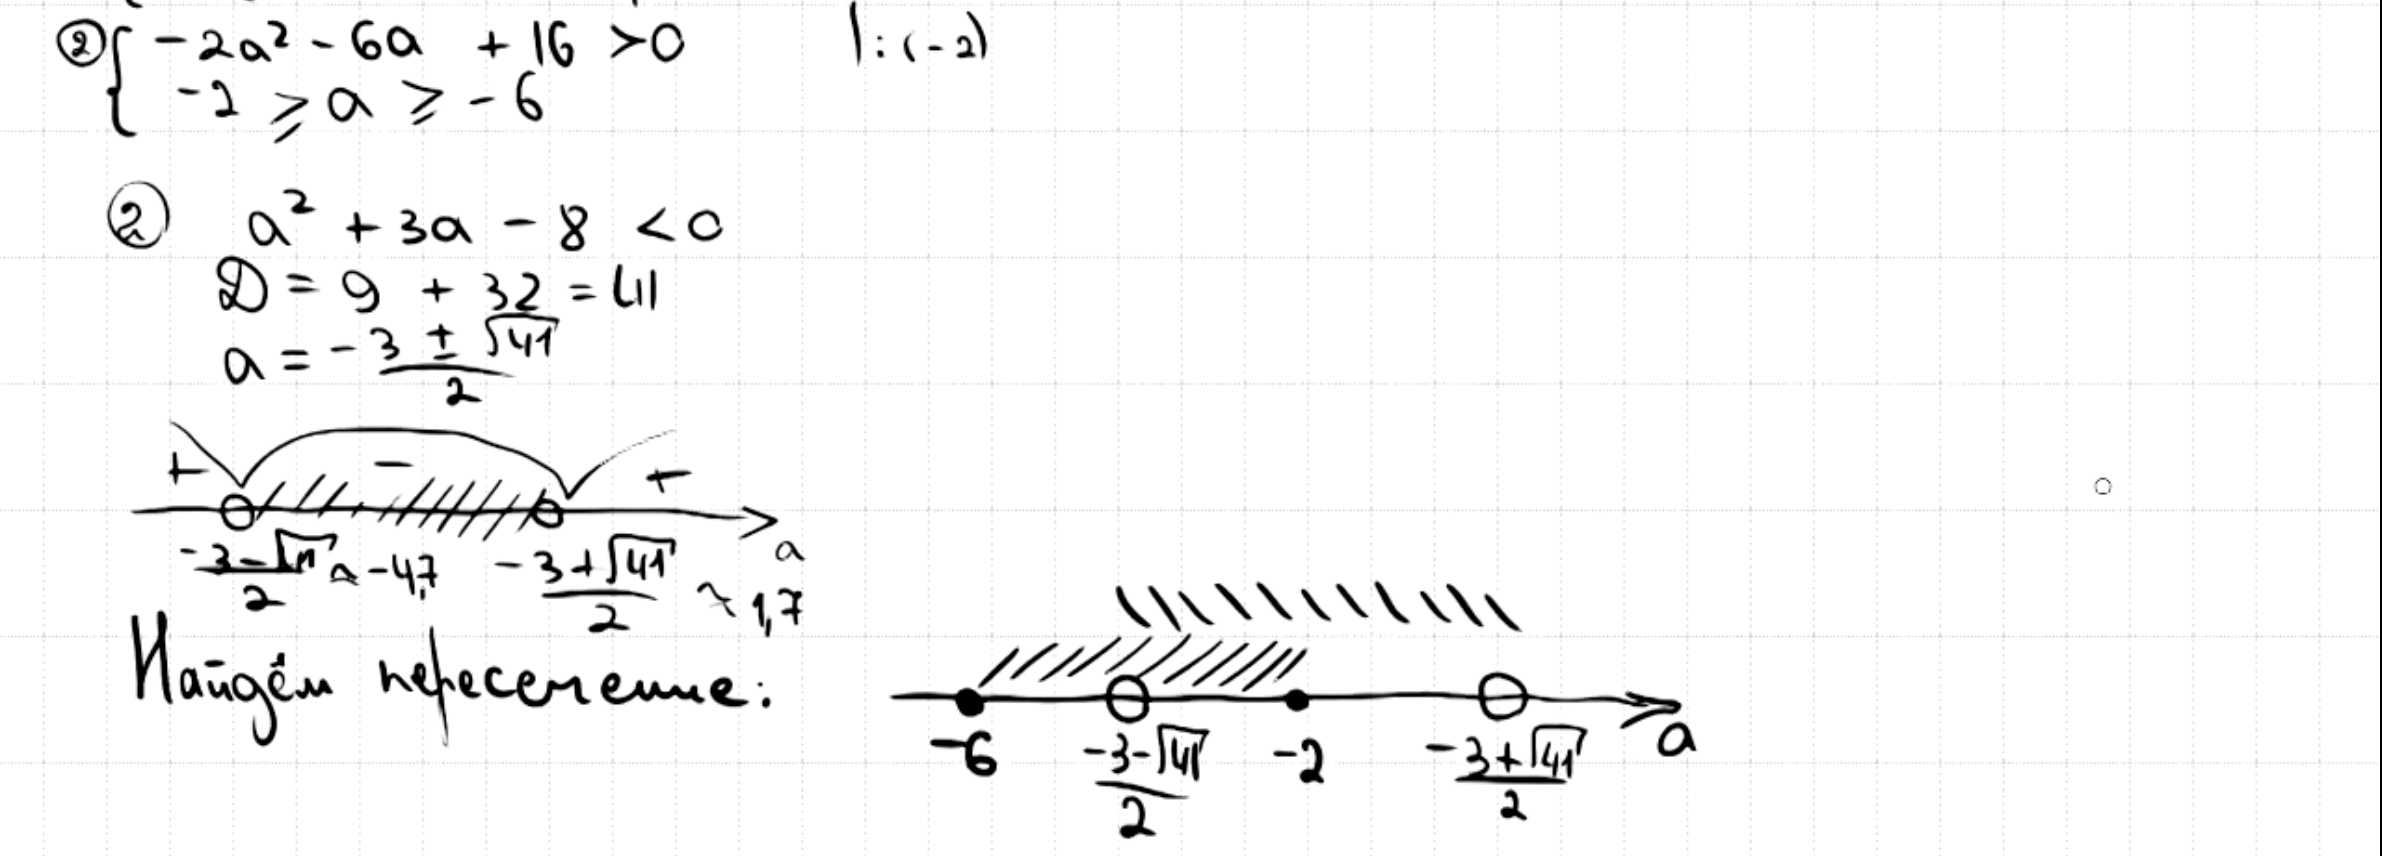 ② { -2a² - 6a + 16 > 0 | : (-2)
-2 ⩾ a ⩾ -6
② a² + 3a - 8 < 0
D = 9 + 32 = 41
a = (-3 ± √41)/2
+ - +
(-3-√41)/2 ≈ -4,7 (-3+√41)/2 ≈ 1,7 a
Найдём пересечение:
-6 (-3-√41)/2 -2 (-3+√41)/2 a